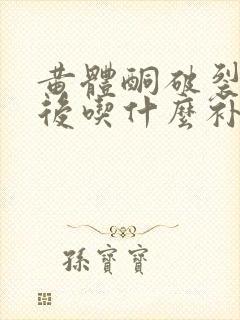 黄體酮破裂
後喫什麼补
孫寶寶